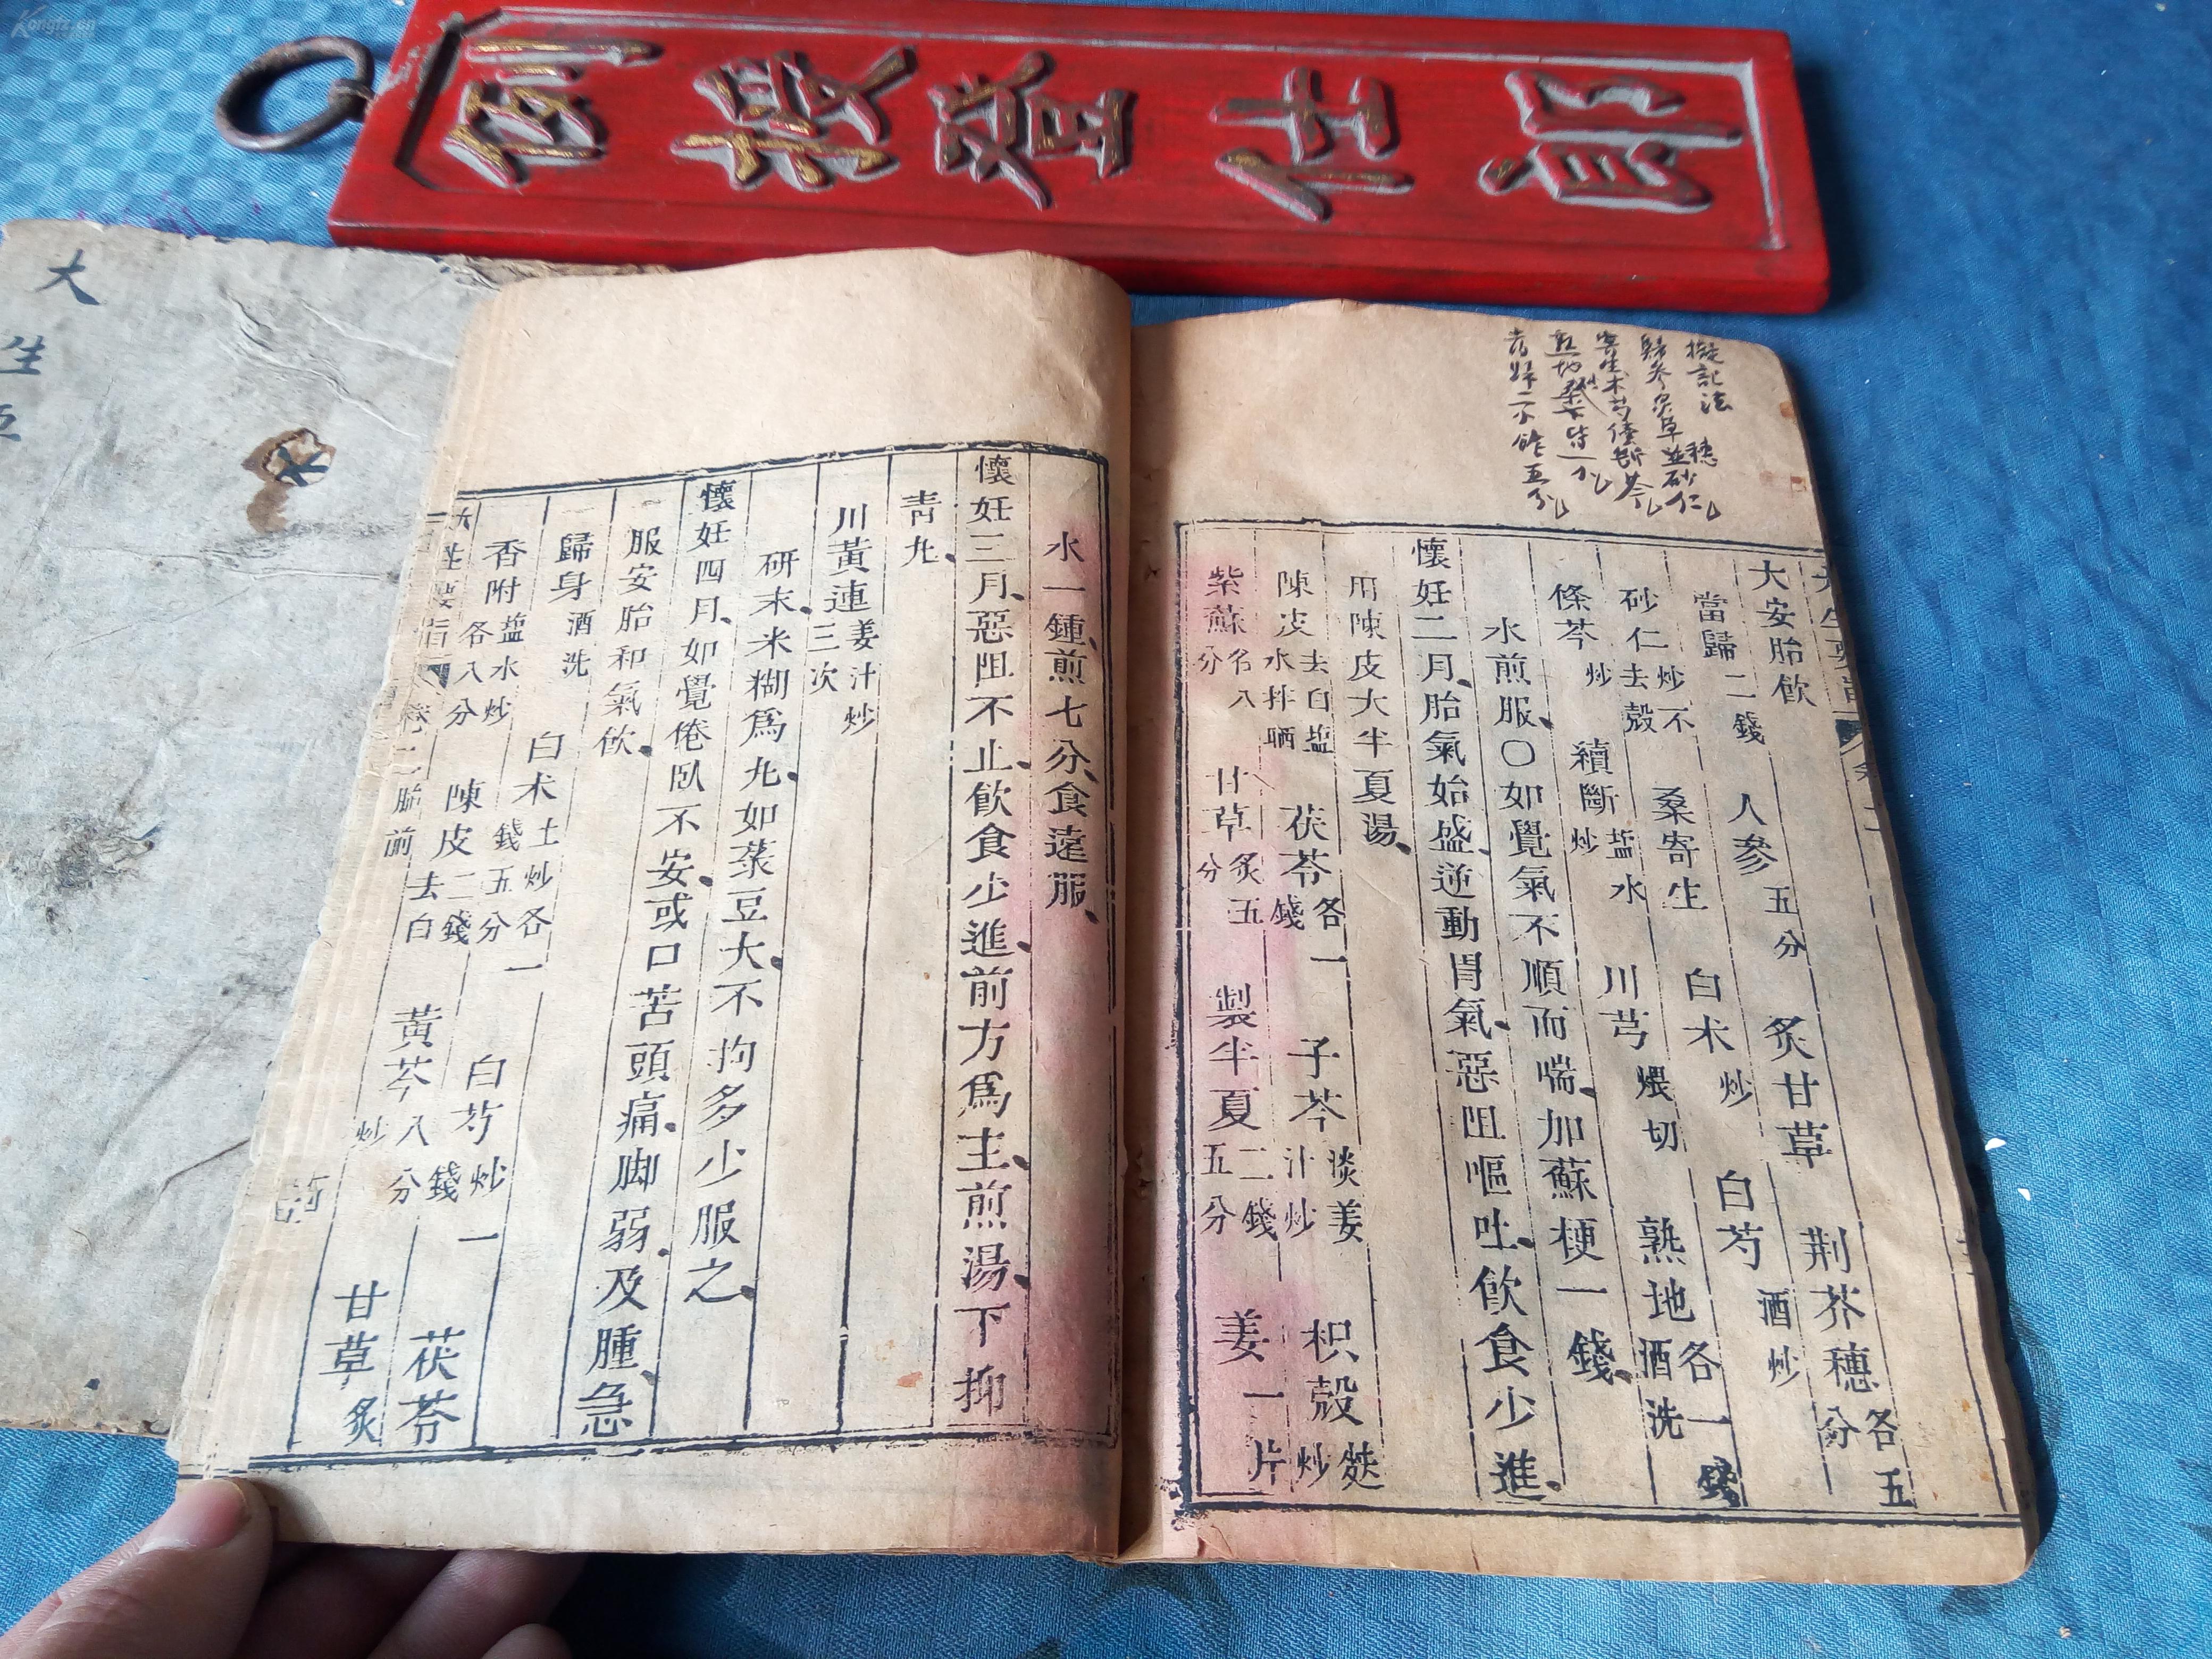 Kongfz.cn
例授登仕郎
大生
大安胎飲
當歸二錢 人參五分 炙甘草 荆芥穗各五分
砂仁炒不去殼 桑寄生 白术炒 白芍酒炒
條芩炒 續斷盐水炒 川芎煨切 熟地酒洗各一錢
水煎服〇如覺氣不順而喘加蘇梗一錢
懷妊二月胎氣始盛逆動胃氣惡阻嘔吐飲食少進
用陳皮大半夏湯
陳皮去白盐水拌晒 茯苓各一錢 子芩淡姜汁炒 枳殼麸炒
紫蘇各八分 甘草炙五分 製半夏二錢五分 姜一片
水一鍾煎七分食遠服
懷妊三月惡阻不止飲食少進前方爲主煎湯下抑
青丸
川黄連姜汁炒三次
研末米糊爲丸如菉豆大不拘多少服之
懷妊四月如覺倦臥不安或口苦頭痛脚弱及腫急
服安胎和氣飲
歸身酒洗 白术土炒各一錢五分 白芍炒一錢 茯苓
香附盐水炒各八分 陳皮去白二錢 黃芩炒八分 甘草炙
卷二胎前
擬記法